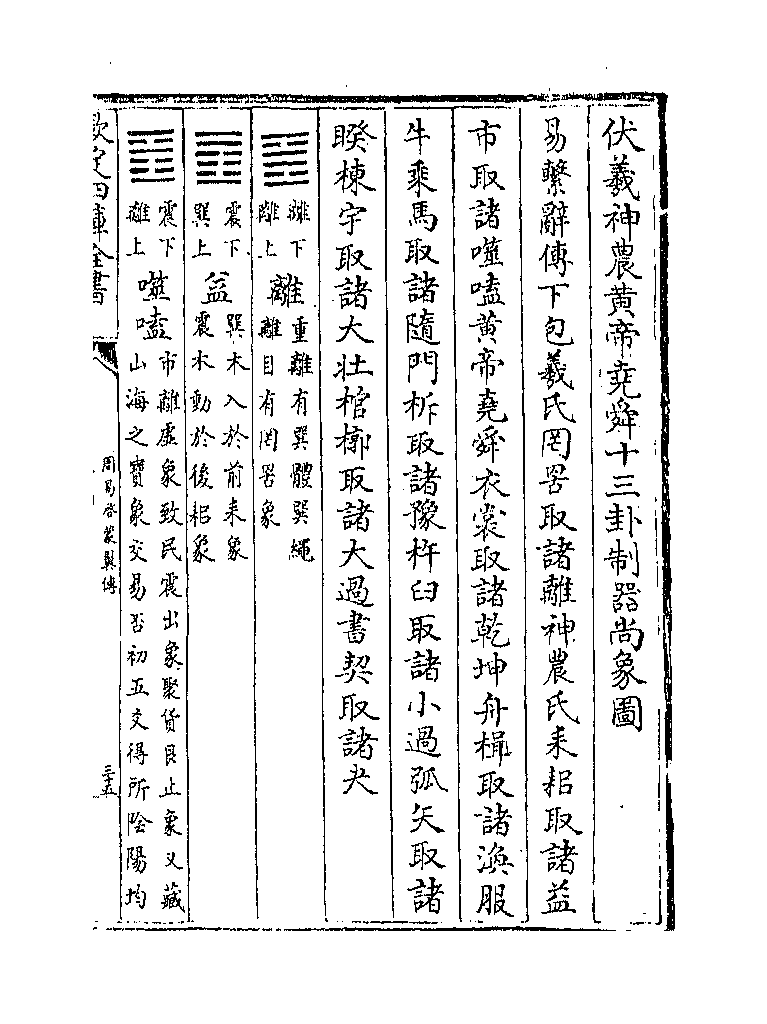 伏羲神農黃帝堯舜十三卦制器尚象圖
易繫辭傳下包羲氏罔罟取諸離神農氏耒耜取諸益
市取諸噬嗑黃帝堯舜衣裳取諸乾坤舟楫取諸渙服
牛乘馬取諸隨門柝取諸豫杵臼取諸小過弧矢取諸
睽棟宇取諸大壯棺槨取諸大過書契取諸夬
離下
離上
離
重離有巽體巽繩
離目有罔罟象
震下
巽上
益
巽木入於前耒象
震木動於後耜象
震下
離上
噬嗑
市離虛象致民震出象聚貨艮止象又藏
山海之寶象交易否初五交得所陰陽均
欽定四庫全書
周易啓蒙翼傳
三十五